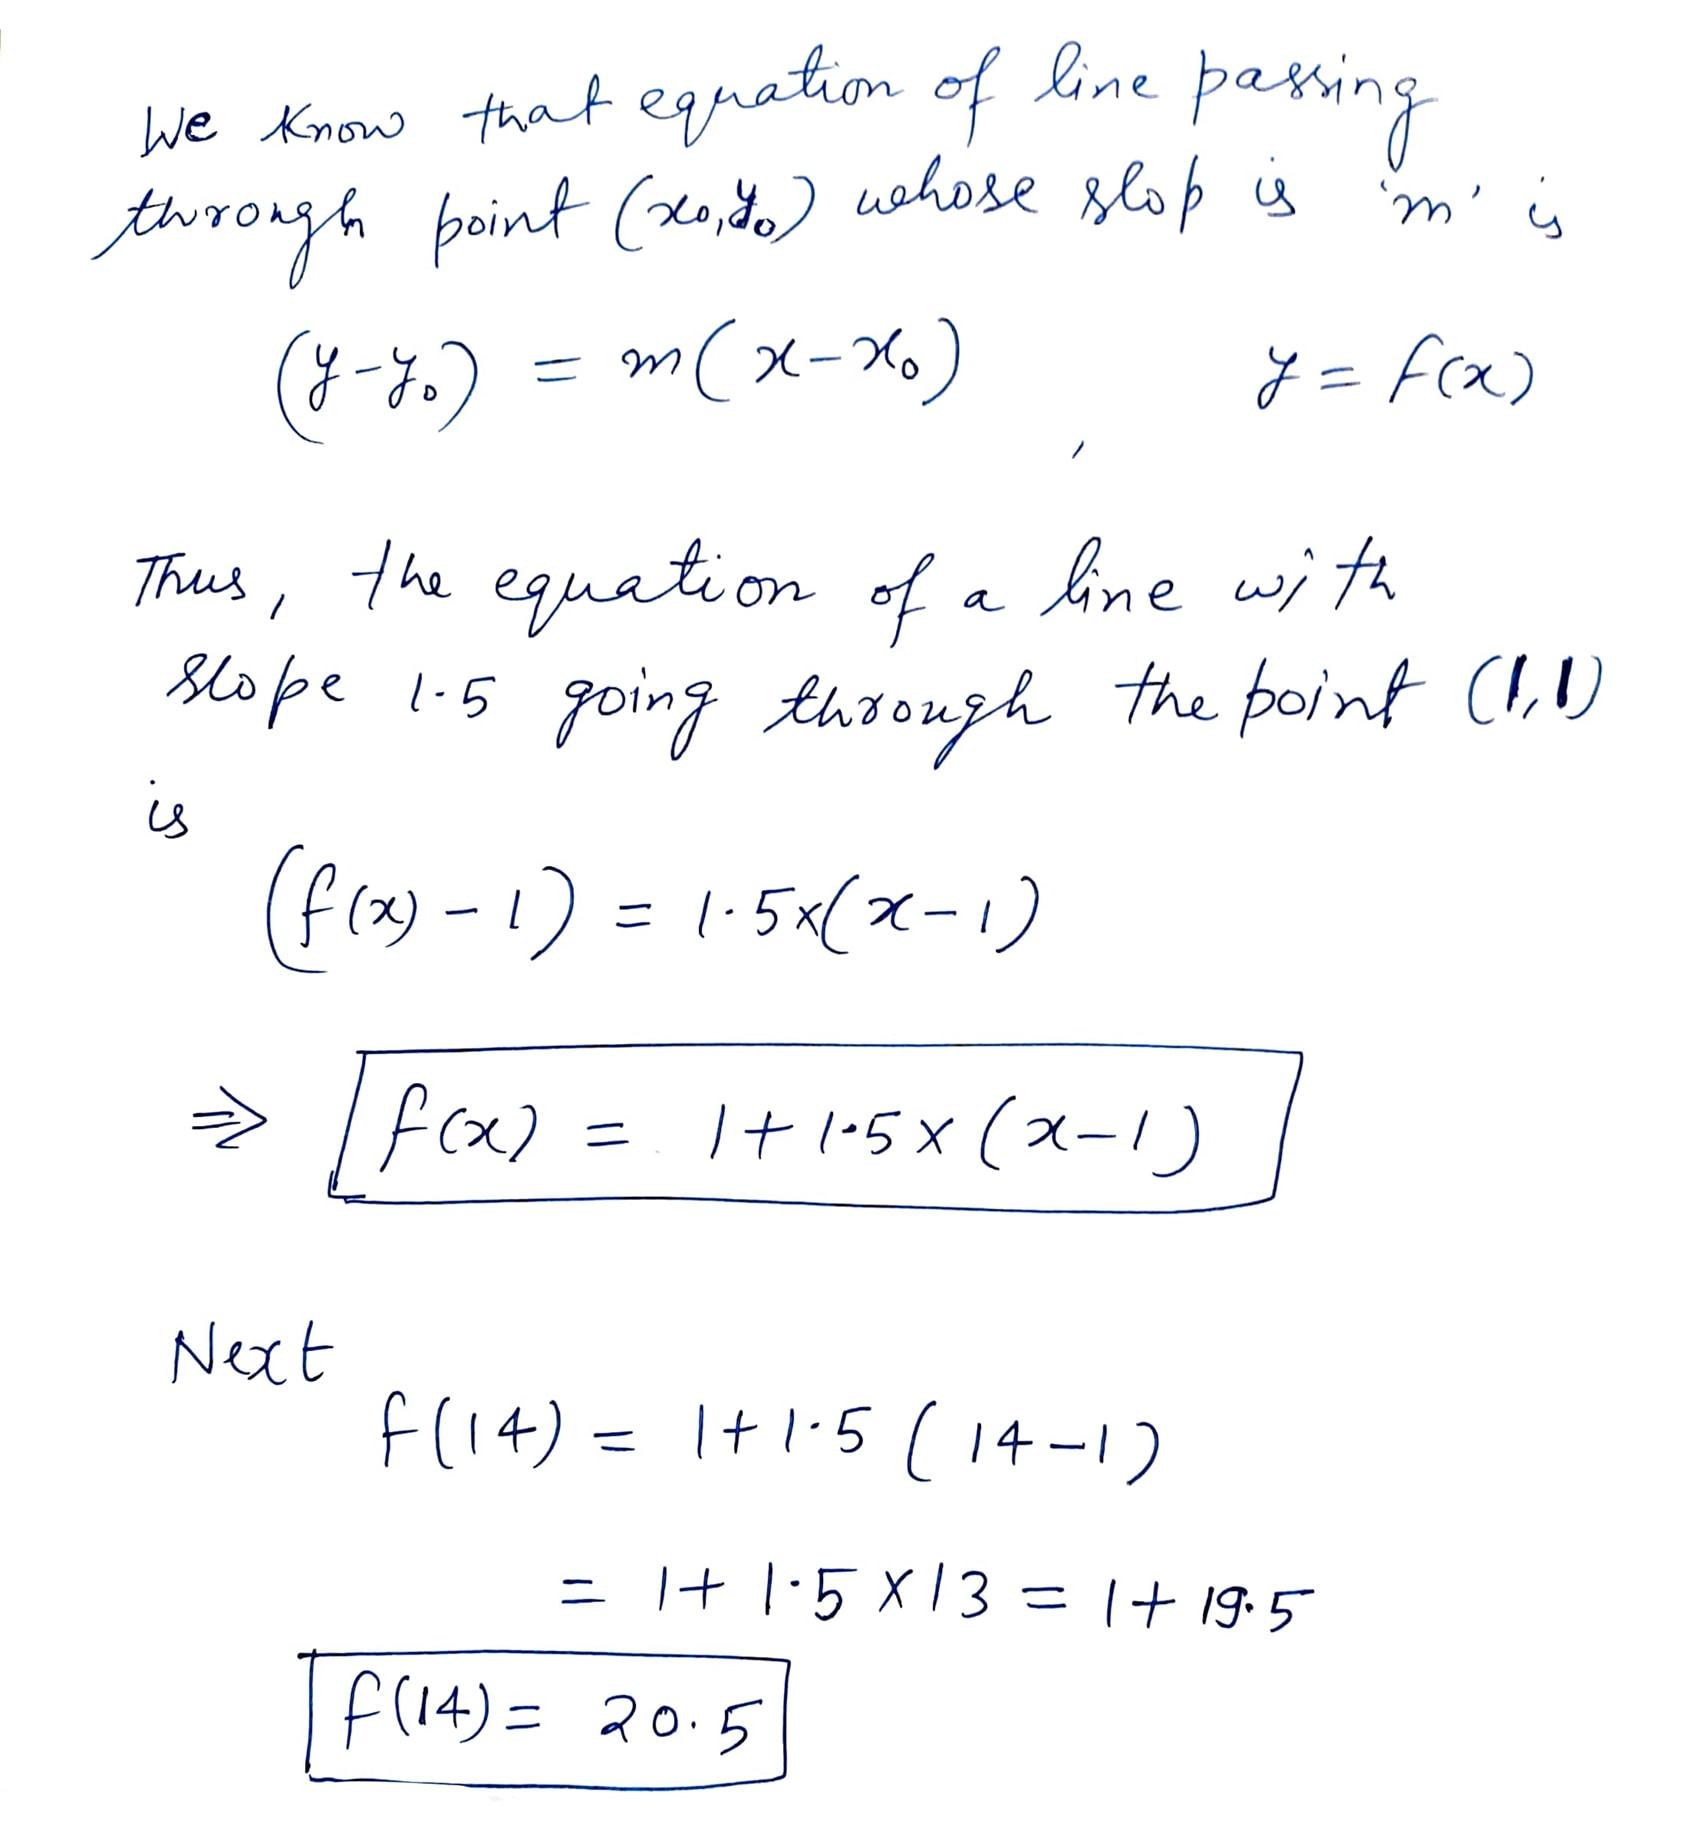 We know that equation of line passing
through point (x₀,y₀) whose slop is 'm' is
(y-y₀) = m(x-x₀) , y = f(x)
Thus, the equation of a line with
slope 1.5 going through the point (1,1)
is
(f(x) - 1) = 1.5×(x-1)
⇒ f(x) = 1+1.5×(x-1)
Next
f(14) = 1+1.5(14-1)
= 1+1.5×13 = 1+19.5
f(14) = 20.5